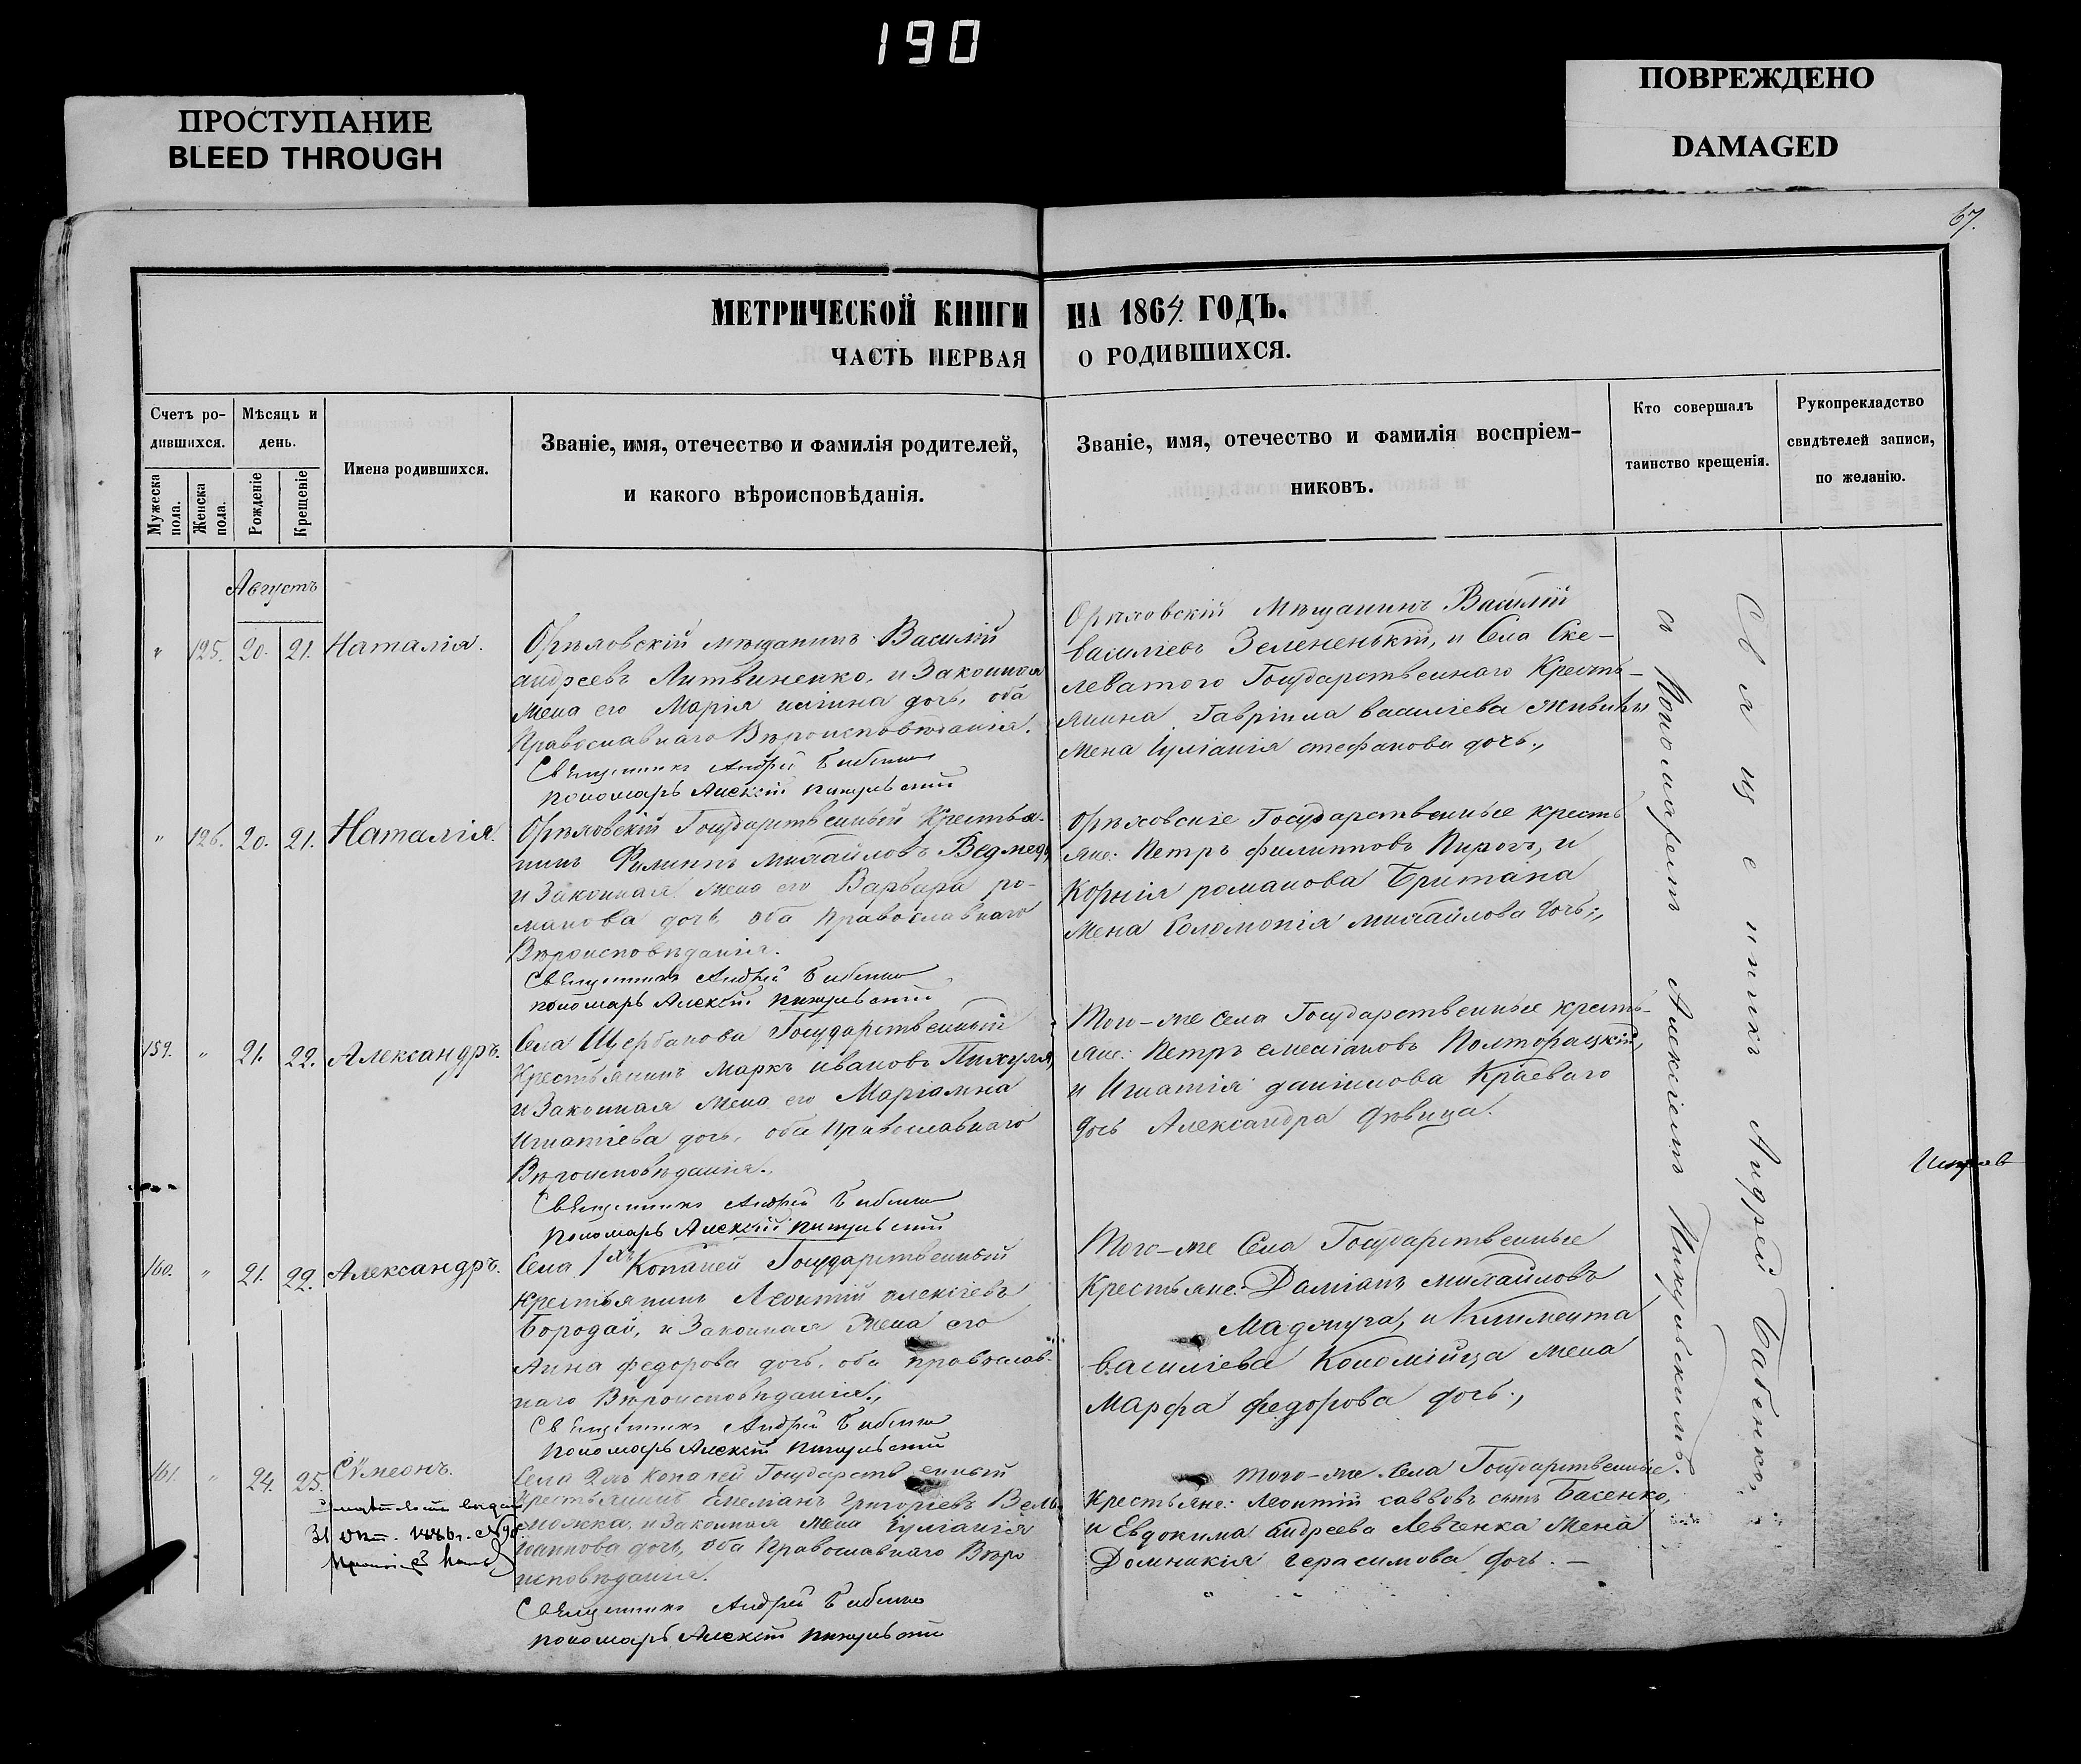 190
ПРОСТУПАНИЕ
BLEED THROUGH
ПОВРЕЖДЕНО
DAMAGED
67.
МЕТРИЧЕСКОЙ КНИГИ НА 1864 ГОДЪ.
ЧАСТЬ ПЕРВАЯ О РОДИВШИХСЯ.
Счетъ ро-
дившихся.
Мужеска
пола.
Женска
пола.
Мѣсяцъ и
день.
Рожденіе
Крещеніе
Имена родившихся.
Званіе, имя, отечество и фамилія родителей,
и какого вѣроисповѣданія.
Званіе, имя, отечество и фамилія воспріем-
никовъ.
Кто совершалъ
таинство крещенія.
Рукоприкладство
свидѣтелей записи,
по желанію.
Августъ
" 125. 20. 21. Наталія.
Орѣховскій мѣщанинъ Василій
андреевъ Литвиненко, и Законная
жена его Марія иліина дочь, оба
Православнаго Вѣроисповѣданія.
Священникъ Андрей
Пономарь Алексій
Орѣховскій Мѣщанинъ Василій
васильевъ Зелененькій, и Села Ске-
леватого Государственнаго Кресть-
янина Гавріила васильева
жена Іуліанія стефанова дочь.,
" 126. 20. 21. Наталія.
Орѣховскій Государственный Крестья-
нинъ Филиппъ михайловъ Ведмедь
и Законная жена его Варвара ро-
манова дочь оба православнаго
Вѣроисповѣданія.
Священникъ Андрей
пономарь Алексій
Орѣховскіе Государственные кресть
яне: Петръ филипповъ Пирогъ, и
Корнія романова Британа
жена Соломонія михайлова дочь.,
159. " 21. 22. Александръ.
Села Щербакова Государственный
Крестьянинъ Маркъ ивановъ Пихуля,
и Законная жена его Маріамна
игнатіева дочь, оба Православнаго
Вѣроисповѣданія.
Священникъ Андрей
Пономарь Алексій
Того-же села Государственные кресть-
яне: Петръ емеліановъ Полторацкій,
и Игнатія даніилова Краеваго
дочь Александра дѣвица.
160. " 21. 22. Александръ.
Села 1хъ Копаней Государственный
крестьянинъ Леонтій алексіевъ
Бородай, и Законная жена его
Анна федорова дочь, оба православ-
наго Вѣроисповѣданія.,
Священникъ Андрей
Пономарь Алексій
Того-же Села Государственные
Крестьяне: Даміанъ михайловъ
Маджуга, и Климента
василіева Коломійца жена
Марфа федорова дочь.,
161. " 24. 25. Сѵмеонъ.
31 Окт. 1886 г. №
Села 2хъ Копаней Государственный
крестьянинъ Емеліанъ григоріевъ
и законная жена Іуліанія
дочь, оба Православнаго Вѣро
исповѣданія.
Священникъ Андрей
пономарь Алексій
Того-же Села Государственные
Крестьяне: Леонтій саввовъ сынъ Басенко,
и Евдокима андреева Левченка жена
Домникія герасимова дочь. —
Священникъ Андрей Бабенко
съ Пономаремъ Алексіемъ